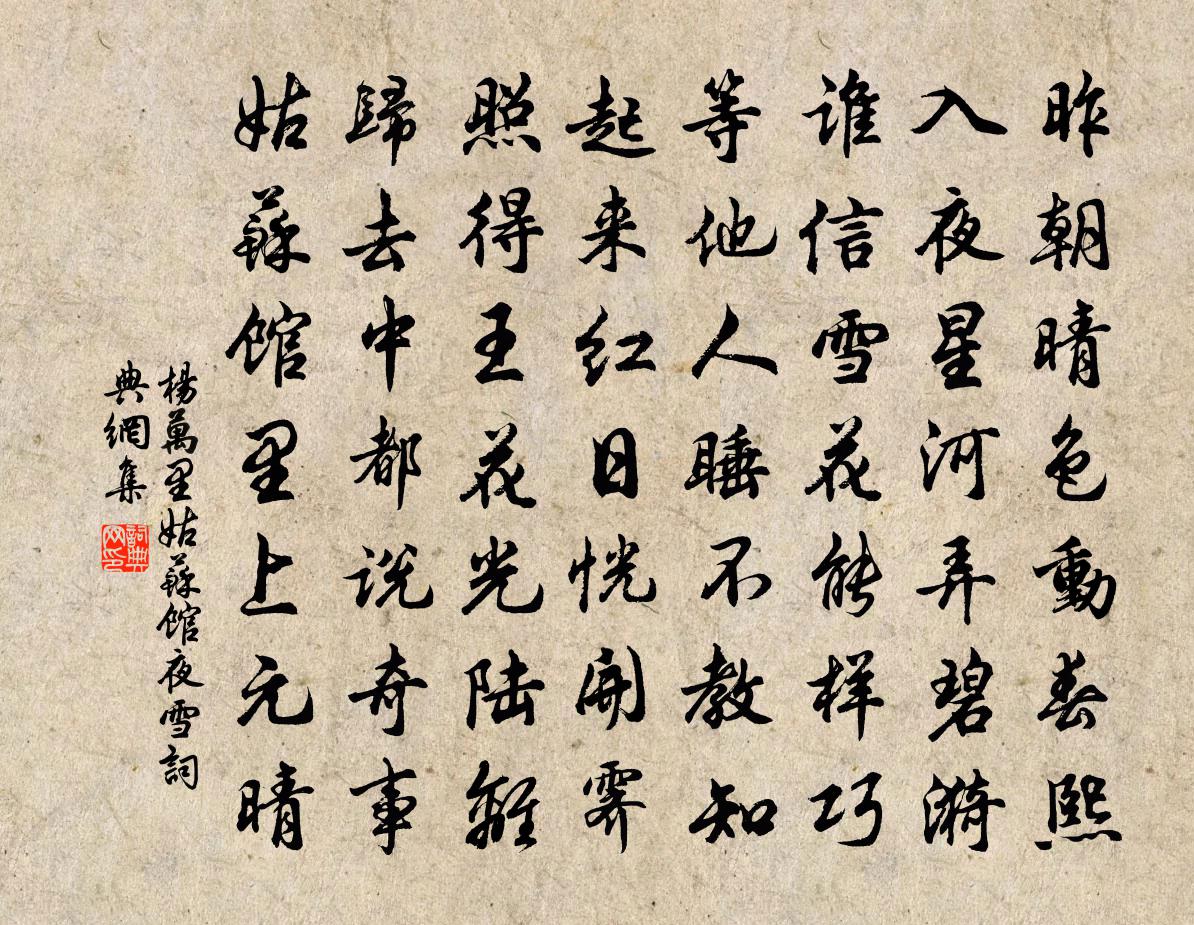 昨朝晴色動春熙
入夜星河弄碧漪
谁信雪花能样巧
等他人睡不教知
起来红日恍開霁
照得王花光陆離
歸去中都说奇事
姑蘇馆里上元晴
楊萬里姑蘇馆夜雪詞
典網集
詞典网印